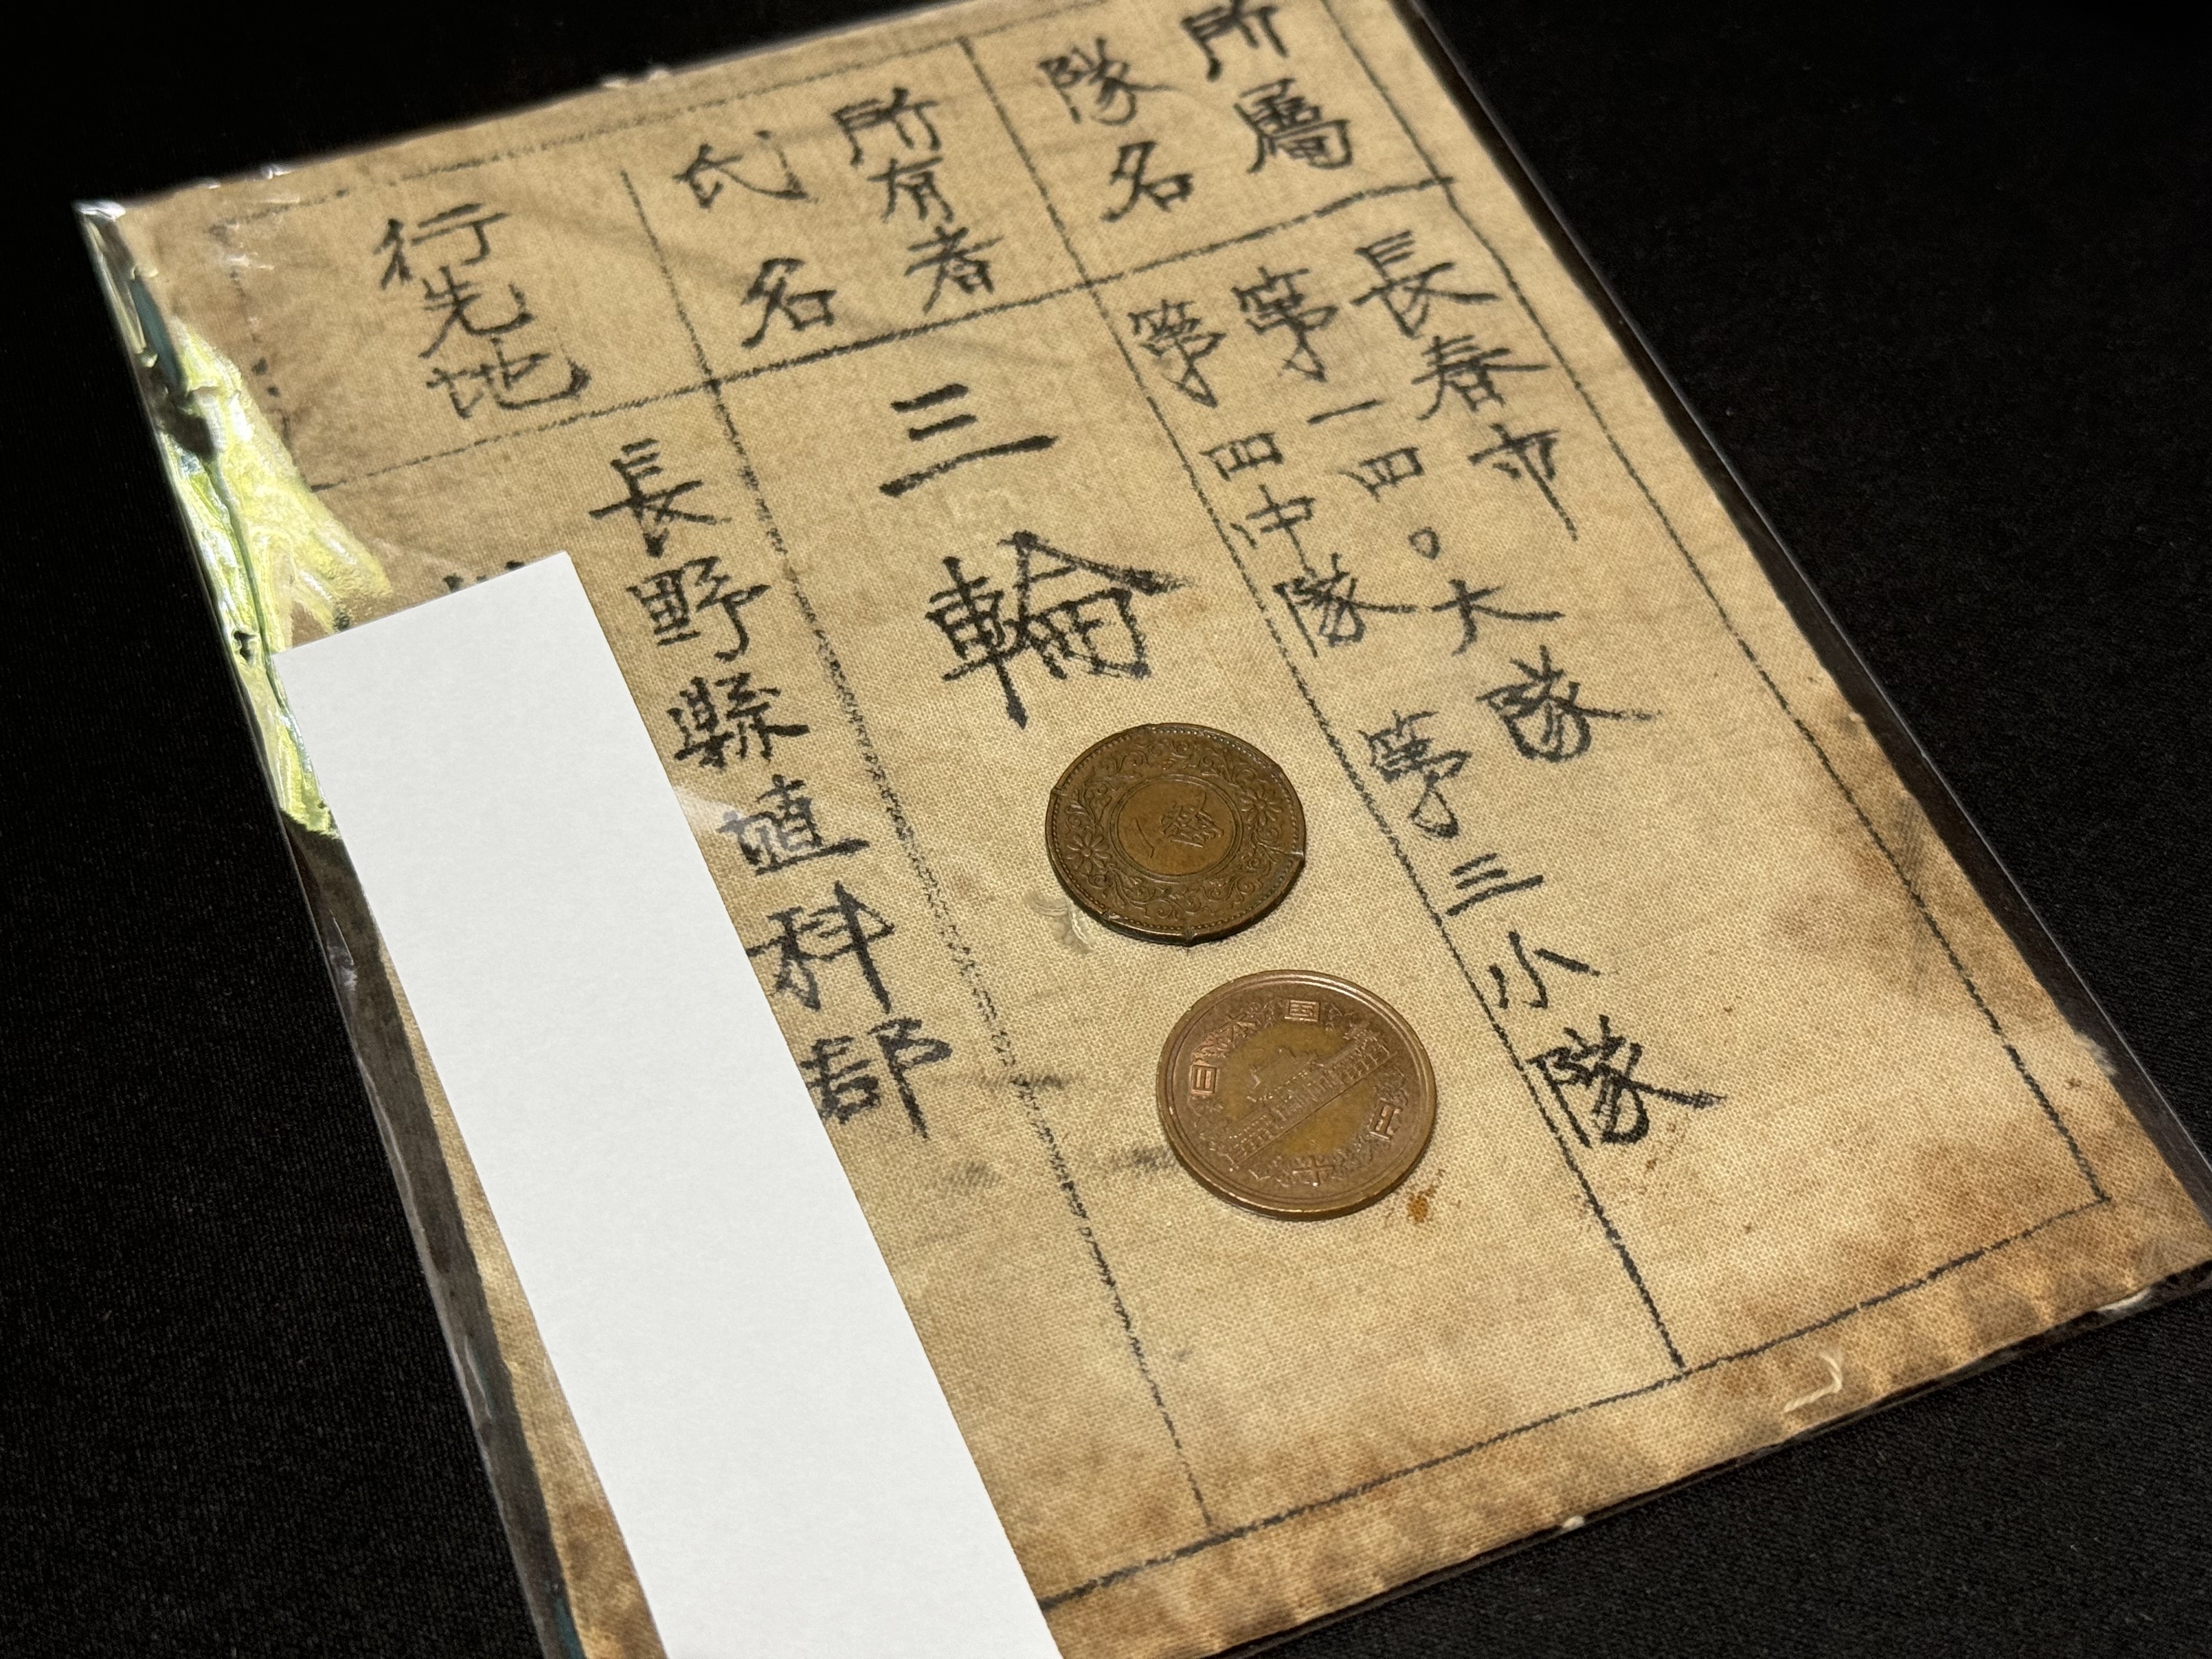 所屬
隊名
長春市
第一四〇大隊
第四中隊第三小隊
所有者
氏名
三輪
行先地
長野縣埴科郡
一銭
日本国
十円